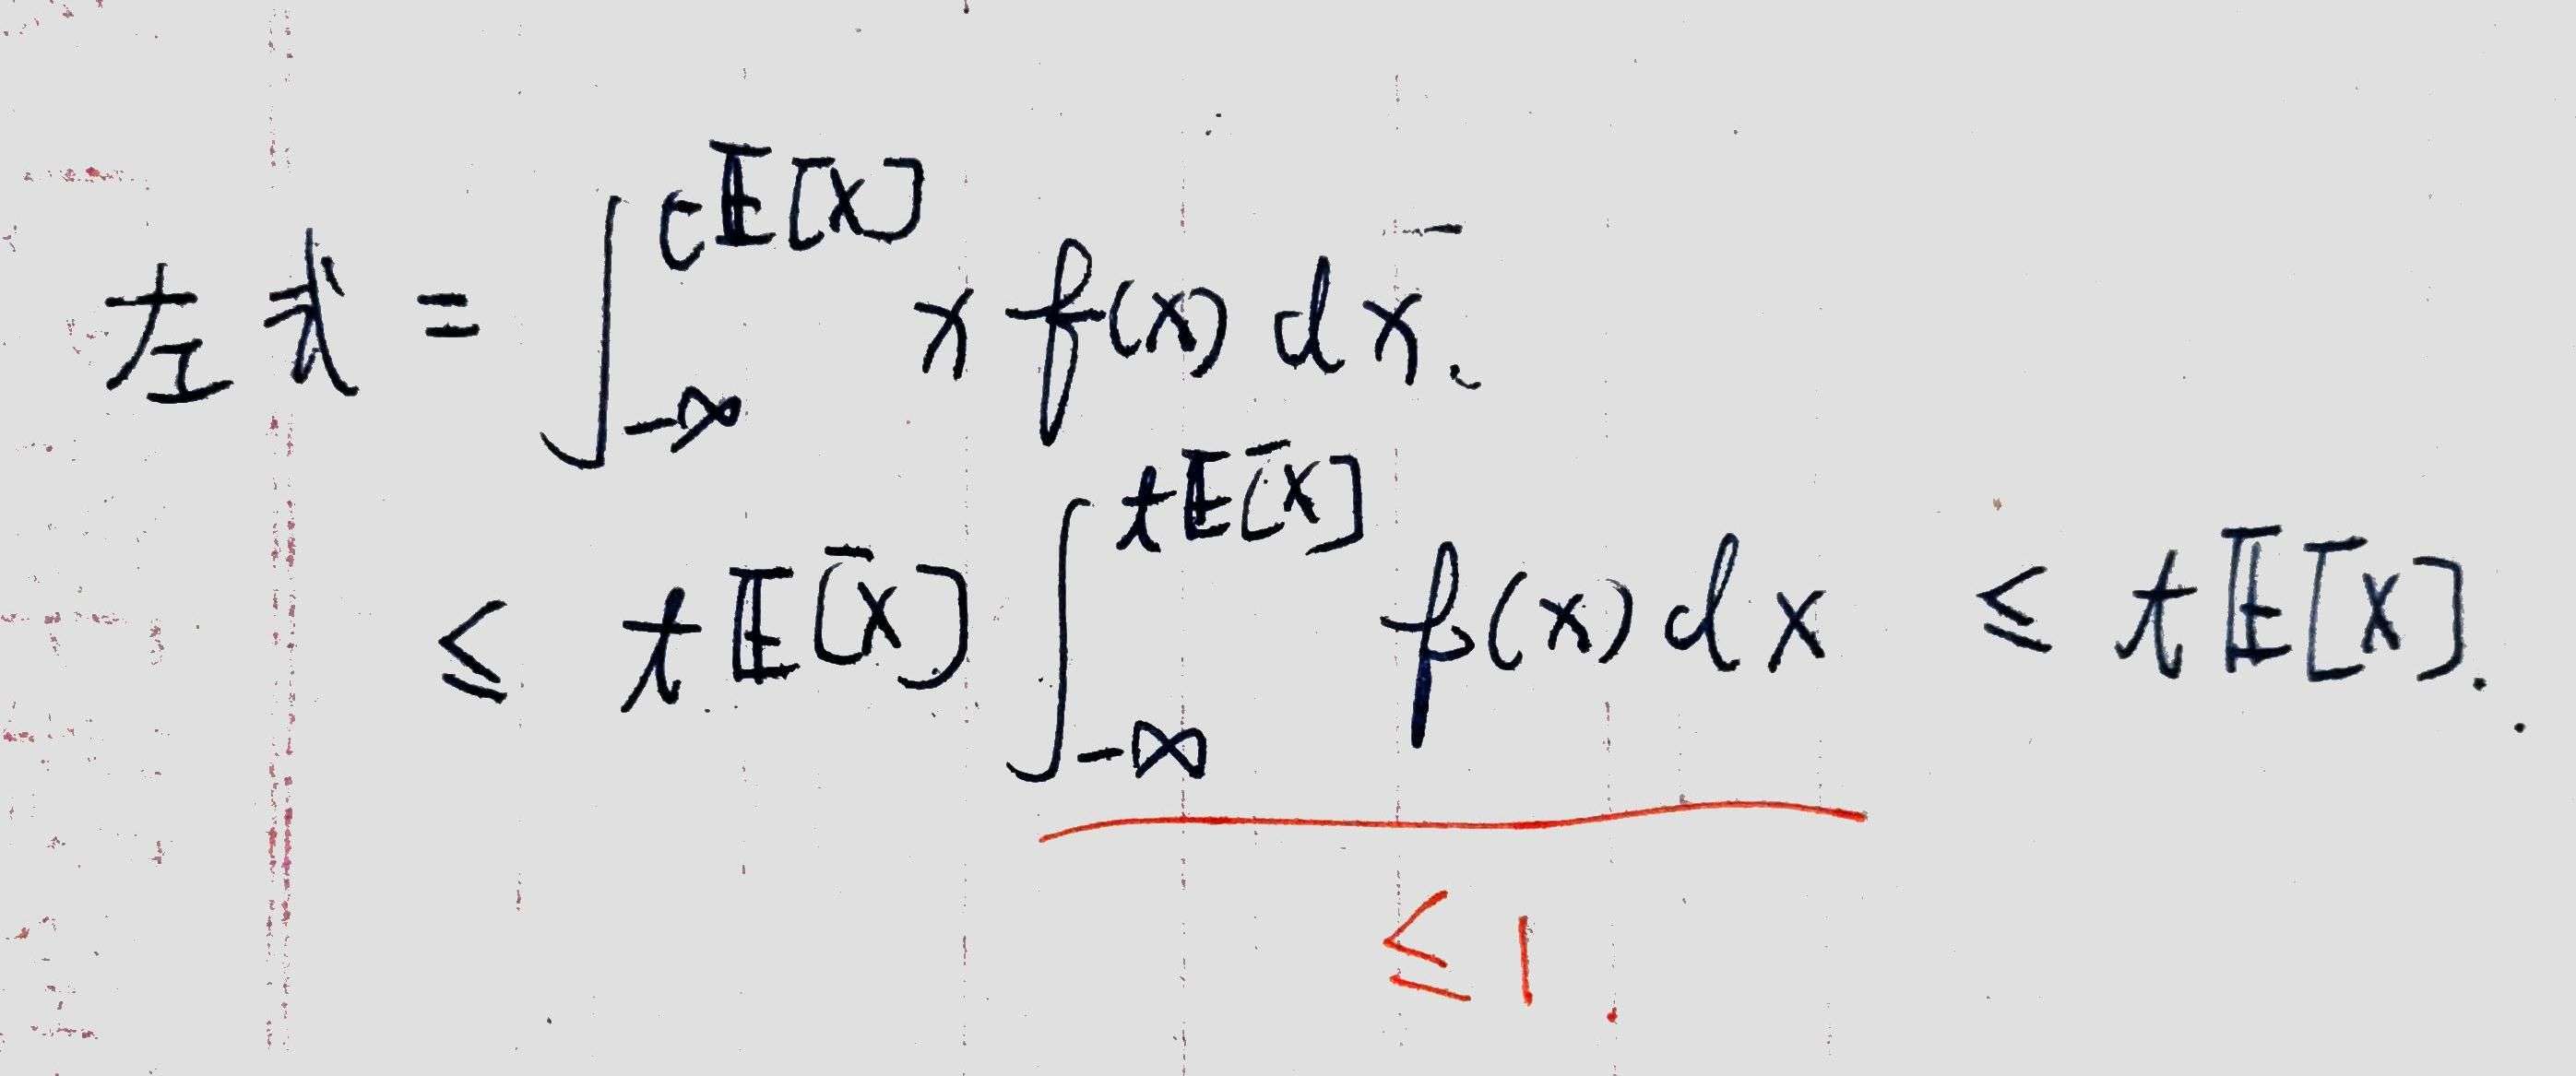 左式 = ∫_{-∞}^{tE[X]} x f(x) dx.
≤ tE[X] ∫_{-∞}^{tE[X]} f(x) dx ≤ tE[X].
≤ 1